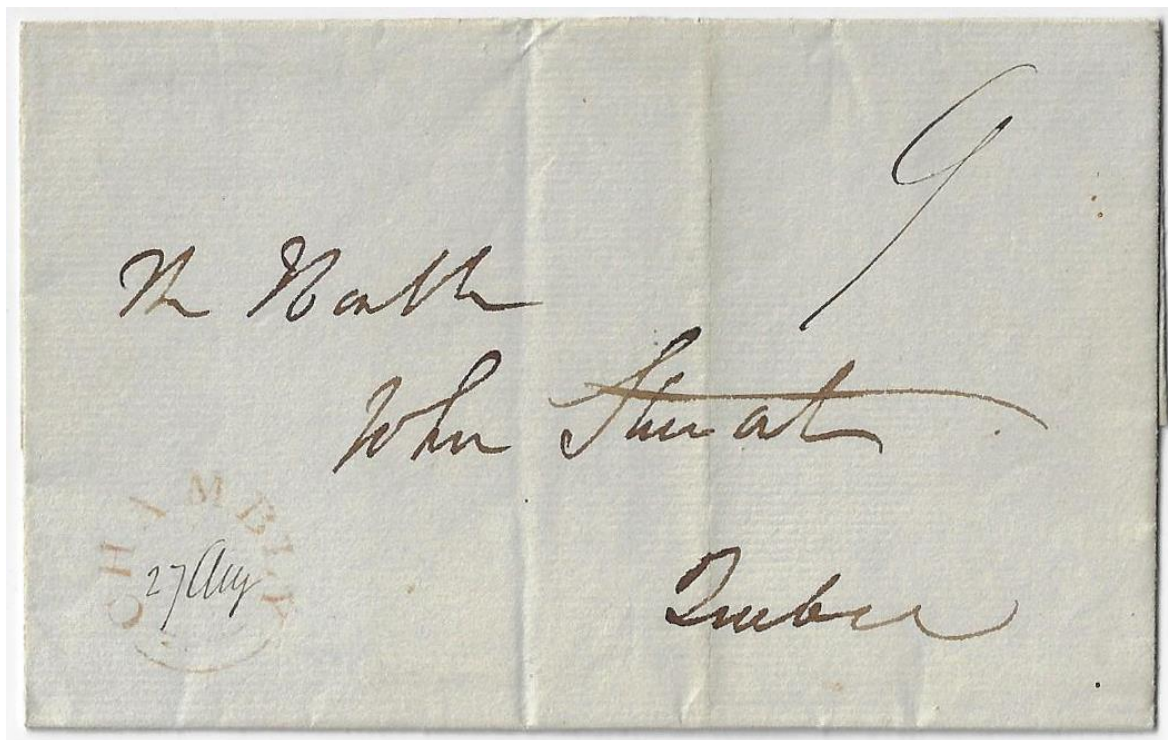 9
The Honble
John Stuart
Quebec
CHAMBLY
27 Aug